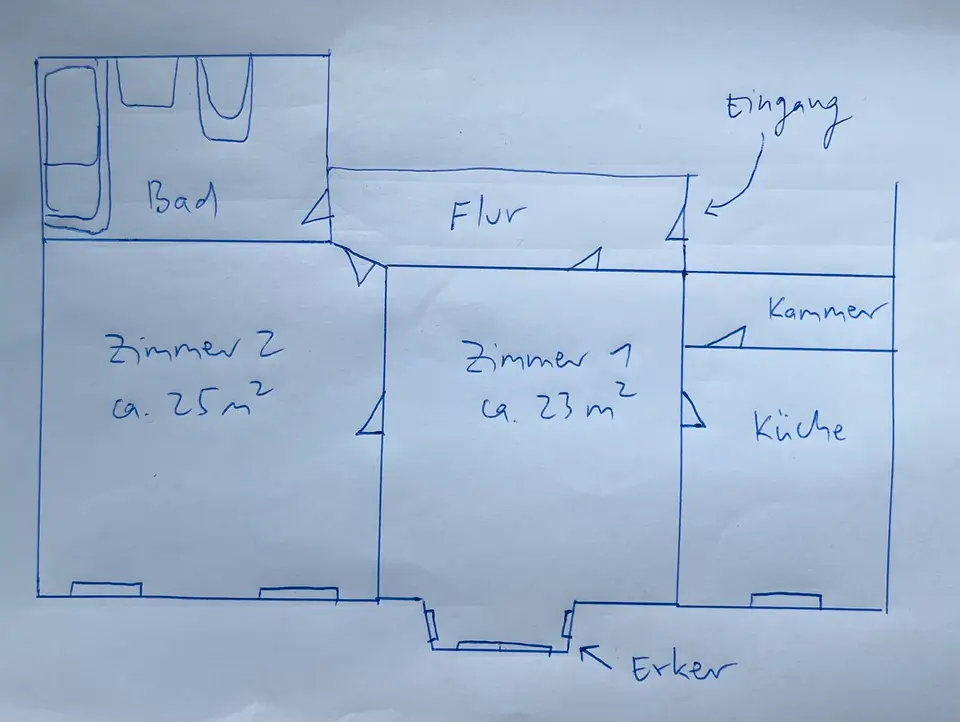 Eingang
Bad
Flur
Kammer
Zimmer 2
ca. 25 m²
Zimmer 1
ca. 23 m²
Küche
Erker